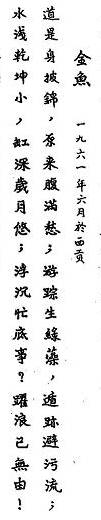 金魚
一九六一年六月於西貢
道是身披錦，原来腹滿愁；游踪生綠藻，遁跡避污流；
水浅乾坤小，缸深歲月悠；浮沉忙底事？躍浪已無由！